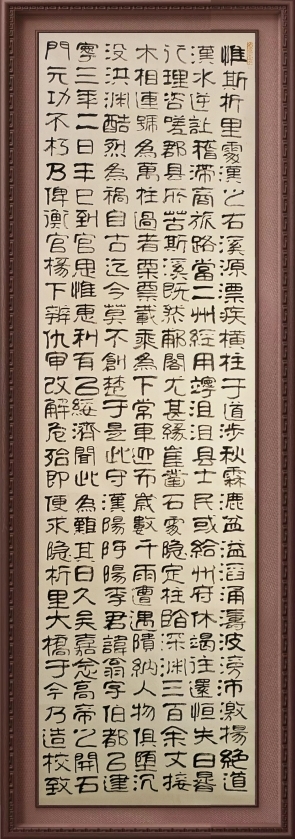 惟斯析里處漢之右溪源漂疾橫柱于道涉秋霖漉盆溢滔涌濤波滂沛激揚絕道
漢水逆讓稽滯商旅路當二州經用竫沮沮县士民或給州府休謁往還恒失日晷
行理咨嗟郡县所苦斯溪既然郙閣尤甚緣崖鑿石處隐定柱臨深渊三百余丈接
木相連號為萬柱過者栗栗載乘為下常車迎布歲數千雨遭遇隤納人物俱堕沉
没洪渊酷烈為禍自古迄今莫不創楚于是太守漢陽阿陽李君諱翕字伯都以建
寧三年二月辛巳到官思惟惠利有以綏濟聞此為難其日久矣嘉念高帝之開石
門元功不朽乃俾衡官掾下辨仇審改解危殆即便求隐析里大橋于今乃造校致